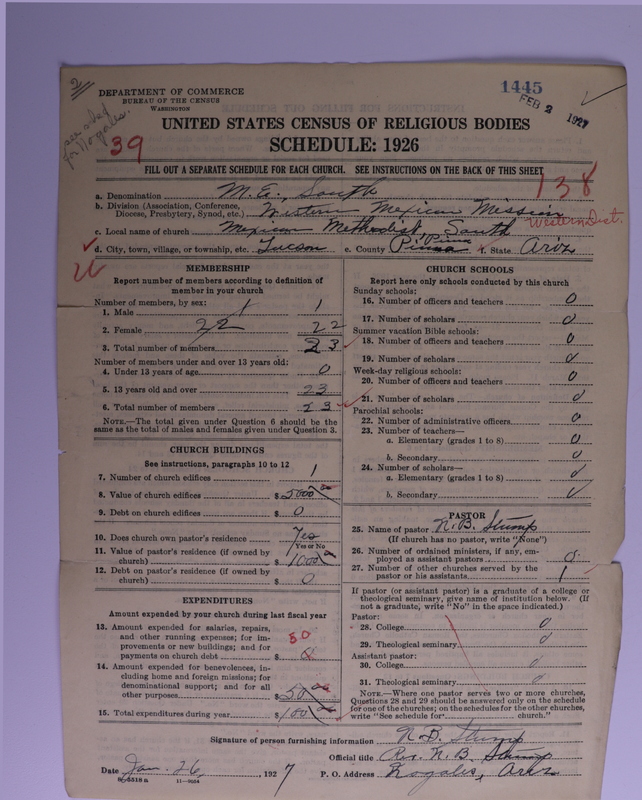 2
see sched
for Nogales.
DEPARTMENT OF COMMERCE
BUREAU OF THE CENSUS
WASHINGTON
1445
FEB 2 1927
UNITED STATES CENSUS OF RELIGIOUS BODIES
SCHEDULE: 1926
39
FILL OUT A SEPARATE SCHEDULE FOR EACH CHURCH. SEE INSTRUCTIONS ON THE BACK OF THIS SHEET
138
a. Denomination M. E., South
b. Division (Association, Conference, Diocese, Presbytery, Synod, etc.) Western Mexican Mission
Western Dist.
c. Local name of church Mexican Methodist, South
d. City, town, village, or township, etc. Tucson e. County Pima f. State Ariz
MEMBERSHIP
Report number of members according to definition of
member in your church
Number of members, by sex:
1. Male 1 1
2. Female 22 22
3. Total number of members 23
Number of members under and over 13 years old:
4. Under 13 years of age 0
5. 13 years old and over 23
6. Total number of members 23
NOTE.—The total given under Question 6 should be the
same as the total of males and females given under Question 3.
CHURCH BUILDINGS
See instructions, paragraphs 10 to 12
7. Number of church edifices 1
8. Value of church edifices $ 5000 00
9. Debt on church edifices $ 0
10. Does church own pastor's residence Yes
Yes or No
11. Value of pastor's residence (if owned by
church) $ 1000 00
12. Debt on pastor's residence (if owned by
church) $ 0
EXPENDITURES
Amount expended by your church during last fiscal year
13. Amount expended for salaries, repairs,
and other running expenses; for im-
provements or new buildings; and for
payments on church debt $ 50
14. Amount expended for benevolences, in-
cluding home and foreign missions; for
denominational support; and for all
other purposes $ 50 00
15. Total expenditures during year $ 100 00
CHURCH SCHOOLS
Report here only schools conducted by this church
Sunday schools:
16. Number of officers and teachers 0
17. Number of scholars 0
Summer vacation Bible schools:
18. Number of officers and teachers 0
19. Number of scholars 0
Week-day religious schools:
20. Number of officers and teachers 0
21. Number of scholars 0
Parochial schools:
22. Number of administrative officers 0
23. Number of teachers—
a. Elementary (grades 1 to 8) 0
b. Secondary 0
24. Number of scholars—
a. Elementary (grades 1 to 8) 0
b. Secondary 0
PASTOR
25. Name of pastor N. B. Stump
(If church has no pastor, write "None")
26. Number of ordained ministers, if any, em-
ployed as assistant pastors 0
27. Number of other churches served by the
pastor or his assistants 1
If pastor (or assistant pastor) is a graduate of a college or
theological seminary, give name of institution below. (If
not a graduate, write "No" in the space indicated.)
Pastor:
28. College 0
29. Theological seminary 0
Assistant pastor:
30. College 0
31. Theological seminary 0
NOTE.—Where one pastor serves two or more churches,
Questions 28 and 29 should be answered only on the schedule
for one of the churches; on the schedules for the other churches,
write "See schedule for church."
Signature of person furnishing information N. B. Stump
Official title Rev. N. B. Stump
Date Jan. 26, 1927 P. O. Address Nogales, Ariz
8-5518 a 11-9204